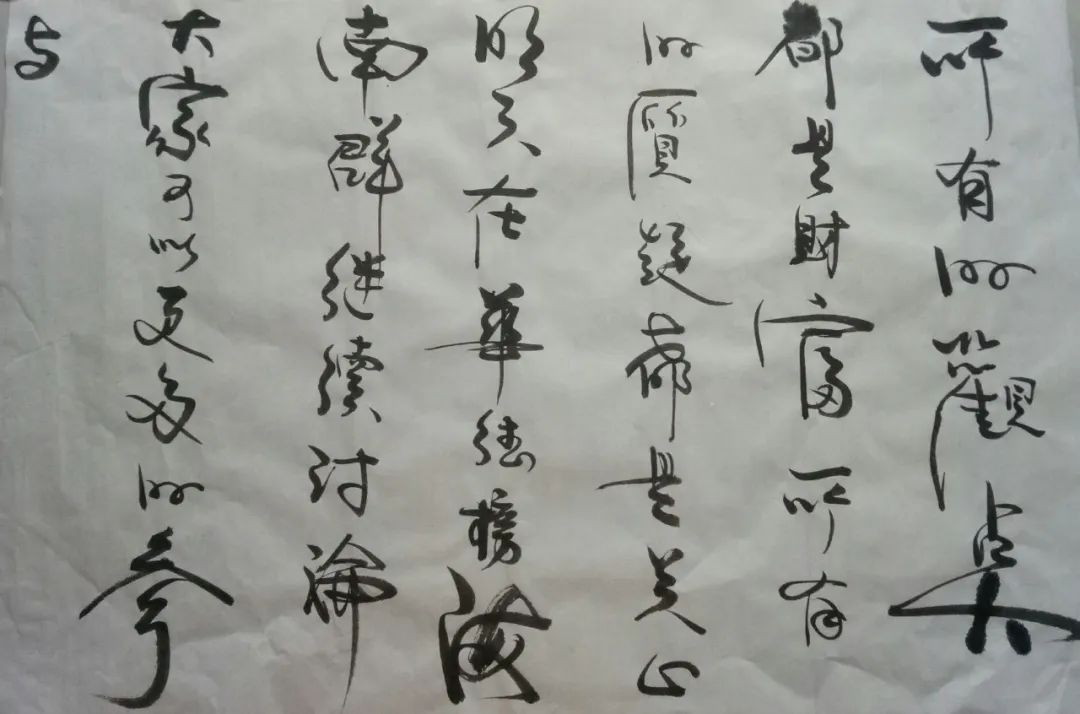 所有的觀奌
都是財富所有
的質疑都是关心
明天在華德榜海
南群继續討論
大家可以更多的参
与